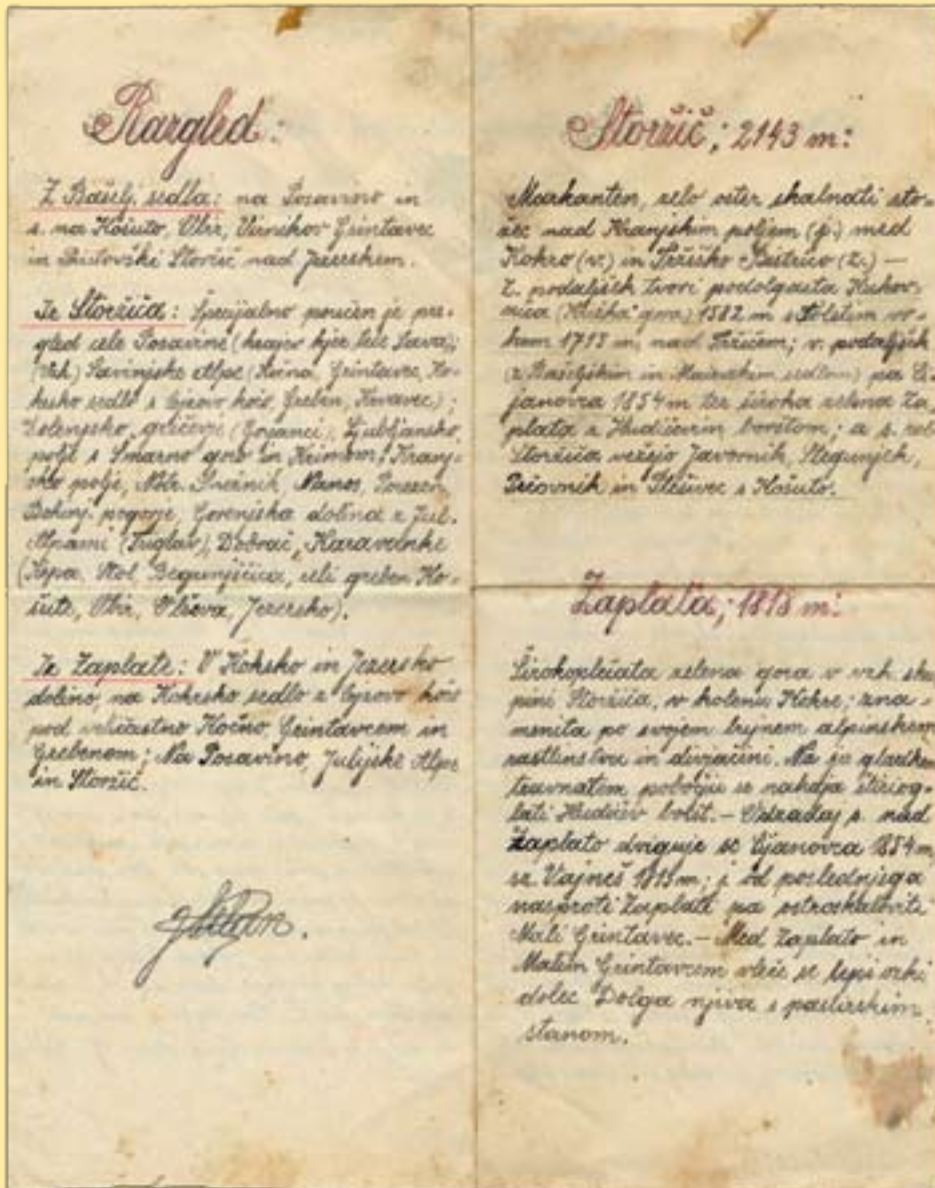 Razgled:
Z Bašelj. sedla: na Posavino in
s. na Košuto, Obir, Virnikov Grintavec
in Pristovški Storžič nad Jezerskem.
Iz Storžica: Specijalno poučen je pre-
gled cele Posavine (krajev kjer teče Sava);
(vzh.) Savinjske Alpe (Kočna, Grintavec, Ko-
krsko sedlo s Cojzovo kočo, Greben, Krvavec);
Dolenjsko gričevje (Gorjanci), Ljubljansko
polje s Šmarno goro in Krimom, Kranj-
sko polje, Notr. Snežnik, Nanos, Porezen
Bohinj. pogorje, Gorenjska dolina z Jul.
Alpami (Triglav), Dobrač, Karavanke
(Kepa, Stol, Begunjščica, celi greben Ko-
šute, Obir, Olševa, Jezersko).
Iz Zaplate: V Kokrsko in Jezersko
dolino, na Kokrsko sedlo z Cojzovo kočo
pod veličastno Kočno, Grintavcem in
Grebenom; Na Posavino, Julijske Alpe
in Storžič.
Storžič; 2143 m:
Markanten, zelo oster skalnati sto-
žec nad Kranjskim poljem (j.) med
Kokro (v.) in Tržiško Bistrico (z.) —
Z. podaljšek tvori podolgasta
(Kriška gora) 1582 m s Tolstem vr-
hom 1715 m, nad Tržičem; v. podaljšek
(z Bašeljskim in sedlom) pa Cj-
janovca 1854 m ter široka zelena Za-
plata z Hudičevim borštom; a s.
Storžica vežejo Javornik, Stegunjek,
in Plešivec s Košuto.
Zaplata; 1818 m:
Širokoplečata zelena gora v vzh. sku-
pini Storžica, v kolenu Kokre; zna-
menita po svojem bujnem alpinskem
rastlinstvu in divjačini. Na je gladkem
travnatem pobočju se nahaja štiriog-
lati Hudičev boršt. — Odzadaj s. nad
Zaplato dviguje se Cjanovca 1854 m,
sv. Vajneš 1815 m; j. od poslednjega
nasproti Zaplati pa ostroskaloviti
Mali Grintavec. — Med Zaplato in
Malem Grintavcem vleče se lepi ozki
dolec Dolga njiva s pastirskim
stanom.